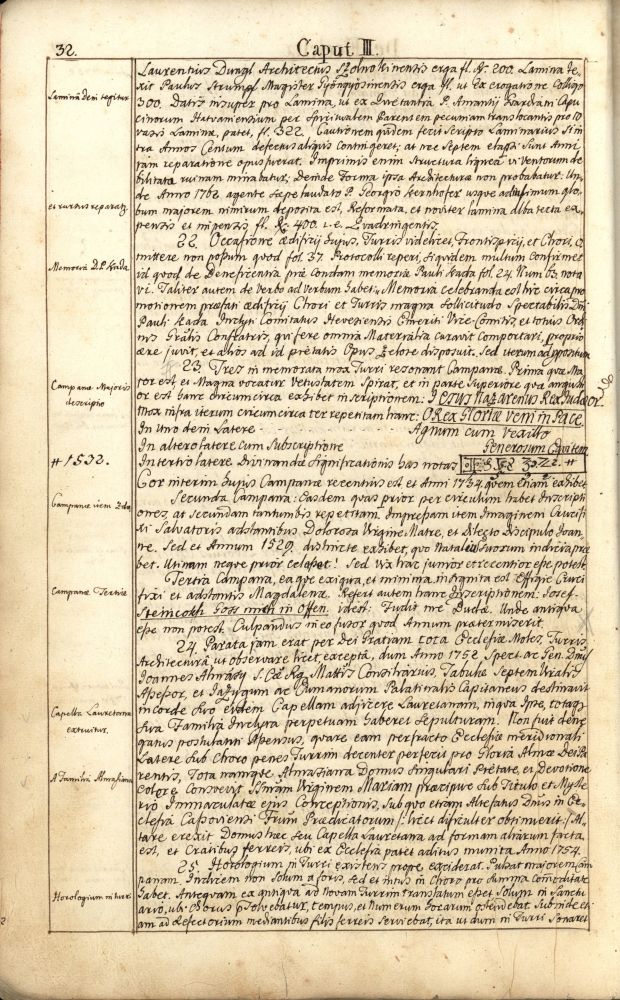 32.
Caput III.
Laurentius Dungl Architectus Szolnokinensis erga fl. Rh. 200. Lamina te-
xit Paulus Strumpf Magister Gyöngyösinensis erga fl. ut Ex erogatione Colligo
300. Datis insuper pro Lamina, ut ex Quietantia P. Amantii Gardiani Capu
cinorum Hatvaniensium per Spiritualem Parentem pecuniam translocantis pro 10
vasis Lamina, patet, fl. 322. Cautionem quidem fecit Scripto Laminarius Si in
tra Annos Centum defectus aliquis contingeret; at nec Septem elapsi Sunt Anni
jam reparatione opus fuerat. Imprimis enim Structura lignea vi Ventorum de
bilitata ruinam minabatur; Deinde Forma ipsa Architecturæ non probabatur. Un
de Anno 1762 agente sæpe laudato P. Georgio Kernhofer usque ad infimum glo
bum majorem nimirum deposita est, Reformata, et noviter lamina alba tecta ex
pensis et impensis fl. Rh. 400. i.e. Quadringentis.
22. Occasione ædificii hujus, Turris videlicet, Frontispicii, et Chori, o
mittere non possum quod fol. 37. Protocolli reperi, Siquidem multum confirmet
id quod de Beneficentia præ Condam memoriæ Pauli Kada fol. 24. Num 63. nota
vi. Taliter autem de verbo ad verbum habet: Memoria celebranda est hic circa pro
motionem præfati ædificii Chori et Turris magna Sollicitudo Spectabilis Dni
Pauli Kada Inclyti Comitatus Hevesiensis Emeriti Vice-Comitis, et totius Ordi
nis Gratis Confratris, qui fere omnia Materialia curavit Comportari, proprio
ære juvit, et alios ad id pietatis Opus Zelose disposuit. Sed iterum ad propositum
23. Tres in memorata mox Turri resonant Campanæ. Prima quæ Ma
jor est, et Magna vocatur Vetustatem Spirat, et in parte Superiore qua angusti
or est hanc circumcirca exhibet inscriptionem: Jesus Nazarenus Rex Judæor
Mox infra iterum circumcirca ter repetitam hanc: O Rex Gloriæ veni in Pace.
In Uno dein Latere - - - Agnum cum vexillo
In altero latere cum Subscriptione Generosum Equitem
In tertio latere Divinandæ significationis has notas
Cor interim hujus Campanæ recentius est et Anni 1734. quem Etiam exhibet
Secunda Campana: Easdem quas prior per circulum habet Inscripti
ones, at secundam tantum bis repetitam. Impressam item Imaginem Crucifi
xi Salvatoris adstantibus Dolorosa Virgine Matre, et Dilecto Discipulo Joan
ne. Sed et Annum 1529. districte exhibet, quo Natalitiis Suorum indicia præ
bet. Utinam neque prior celasset! Sed vix hac junior et recentior esse potest.
Tertia Campana, ea quæ exigua, et minima insignita est effigie Cruci
fixi et adstantis Magdalenæ. Refert autem hanc Inscriptionem: Josef-
Steincokh Goss mich in Offen. idest: Fudit me Budæ. Unde antiqua
esse non potest. Culpandus in eo fusor quod Annum prætermiserit.
24. Parata jam erat per Dei Gratiam tota Ecclesiæ Moles, Turris
Architectura, ut observare licet, excepta, dum Anno 1752 Spect. ac Gen. Dnus
Joannes Almásy S. Cæ. Rg. Mattis Consiliarius, Tabulæ Septem Viralis
Assessor, et Jazygum ac Cumanorum Palatinalis Capitaneus destinavit
in corde suo eidem Capellam adjicere Lauretanam, in qua Ipse, totaque
sua Familia Inclyta perpetuam haberet Sepulturam. Non fuit dene
gatus postulanti Assensus, quare eam perfacto Ecclesiæ meridionali
Latere Sub Choro penes Turrim decenter perfecit pro Gloria Almæ Dei Pa
rentis, Tota namque Almasiana Domus Singulari Pietate, et Devotione
Colere Consuevit SSmam Virginem Mariam præcipue sub Titulo et Myste
rio Immaculatæ ejus Conceptionis, Sub quo etiam Altefatus Dnus in Ec
clesia Cassoviensi Frum Prædicatorum /: licet difficulter obtinuerit:/ Al
tare erexit Domus hæc seu Capella Lauretana ad formam aliarum facta
est, et Cratibus ferreis, ubi ex Ecclesia patet aditus munita Anno 1754.
25. Horologium in Turri existens prope, exciderat. Pulsat majorem Cam
panam. Indicem non Solum a foris, sed et intus in Choro pro Summa Commoditate
habet. Antequam ex antiqua ad Novam Turrim translatum esset Solum in Sanctu
ario, ubi Chorus psolvebatur, tempus, et Numerum horarum ostendebat. Subinde eti
am ad Refectorium mediantibus filis ferreis serviebat, ita ut dum in Turri Sonaret
Lamina dein tegitur
et rursus reparatur
Memoria D. P. Kada
Campanæ Majoris
descriptio
# 1532.
Campanæ item 2dæ
Campanæ Tertiæ
Capella Lauretana
extruitur.
A Familia Almasiana
Horologium in turri